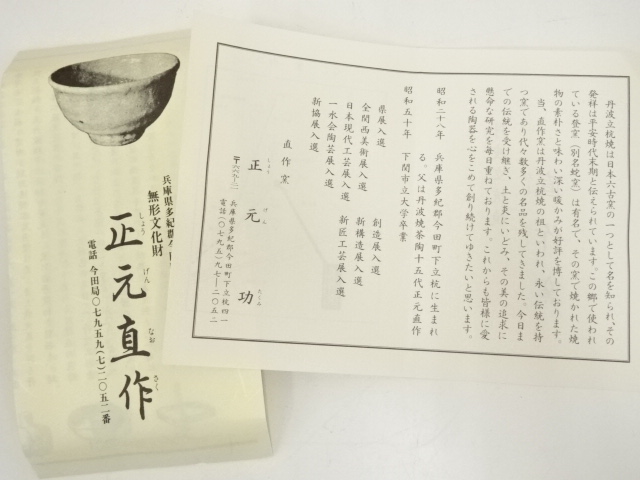 丹波立杭焼は日本六古窯の一つとして名を知られ、その
発祥は平安時代末期と伝えられています。この郷で使われ
ている登窯(別名蛇窯)は有名で、その窯で焼かれた焼
物の素朴さと味わい深い暖かみが好評を博しております。
当、直作窯は丹波立杭焼の祖といわれ、永い伝統を持
つ窯であり代々数多くの名品を残してきました。今日ま
での伝統を受け継ぎ、土と炎にいどみ、その美の追求に
懸命な研究を毎日重ねております。これからも皆様に愛
される陶器を心をこめて創り続けてゆきたいと思います。
昭和二十八年 兵庫県多紀郡今田町下立杭に生まれ
る。父は丹波焼茶陶十五代正元直作
昭和五十年 下関市立大学卒業
県展入選 創造展入選
全関西美術展入選 新構造展入選
日本現代工芸展入選 新匠工芸展入選
一水会陶芸展入選
新協展入選
直作窯
正元 功
しょう げん たくみ
兵庫県多紀郡今田町下立杭四一
電話(〇七九五九)七―二〇五二
兵庫県多紀郡今田
無形文化財
正元直作
しょう げん なお さく
電話 今田局〇七九五九(七)二〇五二番